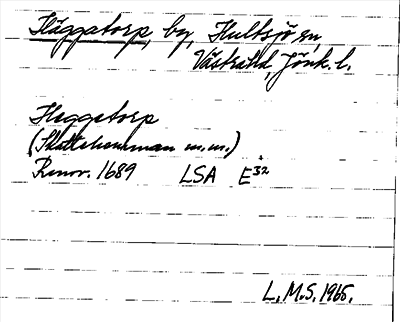 Häggatorp, by, Hultsjö sn,
Västra hd, Jönk. l.
Heggatorp
(Skattehemman m.m.)
Renov. 1689 LSA E32
L. M.S. 1965.